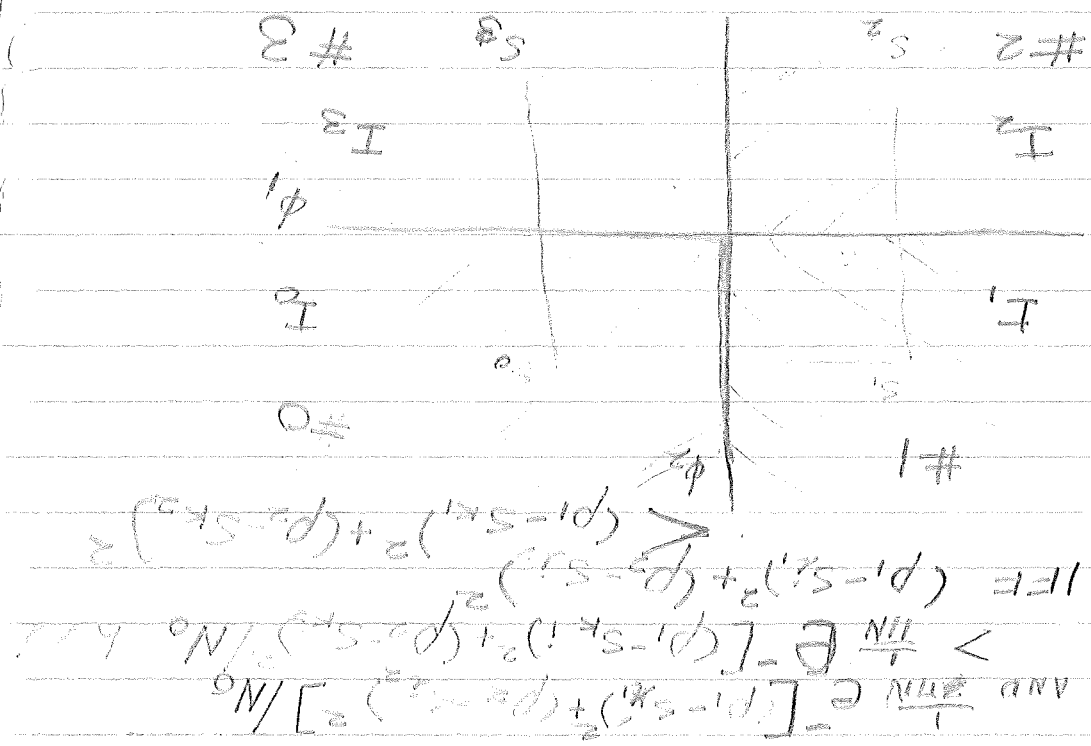 AND 1/πN e^-[(ρ1-Si1)²+(ρ2-Si2)²]/N0
> 1/πN e^-[(ρ1-Sk1)²+(ρ2-Sk2)²]/N0
IFF (ρ1-Si1)²+(ρ2-Si2)²
< (ρ1-Sk1)²+(ρ2-Sk2)²
#1 φ2
#0
S1 S0
I1 I0
φ1
I2 I3
#2 S2 S3 #3